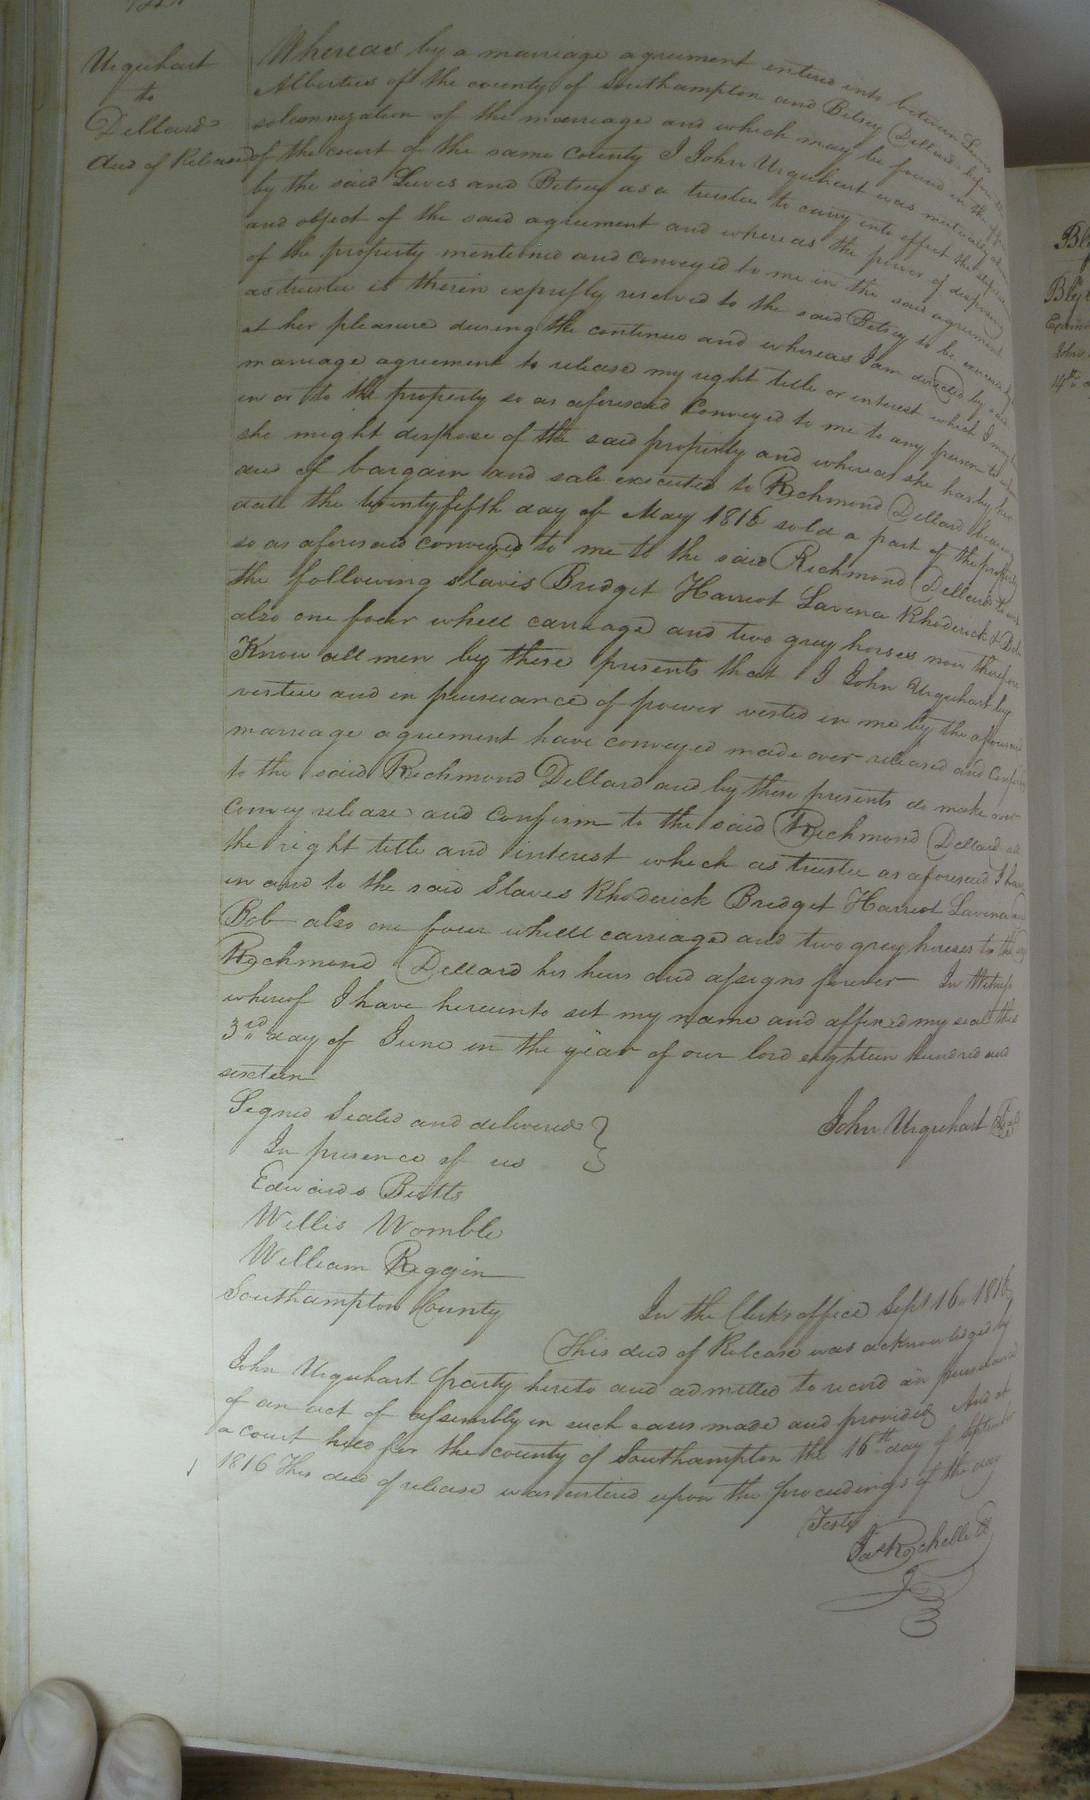 Urquhart
to
Dellard
deed of Release
Whereas by a marriage agreement entered into between
Albertus of the county of Southampton and Betsey Dellard before the
solemnization of the marriage and which may be found in the
of the court of the same county I John Urquhart was mutually
by the said Luves and Betsey as a trustee to carry into effect the
and object of the said agreement and whereas the power of disposing
of the property mentioned and conveyed to me in the said agreement
as trustee is therein expressly reserved to the said Betsey to be exercised
at her pleasure during the continue and whereas I am directed by
marriage agreement to release my right title or interest which I may
in or to the property so as aforesaid conveyed to me to any person to whom
she might dispose of the said property and whereas she has by her
deed of bargain and sale executed to Richmond Dellard bearing
date the twentyfifth day of May 1816 sold a part of the property
so as aforesaid conveyed to me to the said Richmond Dellard to wit
the following slaves Bridget Harriot Lavina Rhoderick & Bob
also one four wheel carriage and two grey horses now therefore
Know all men by these presents that I John Urquhart by
vertue and in pursuance of power vested in me by the aforesaid
marriage agreement have conveyed made over released and confirm
to the said Richmond Dellard and by these presents do make over
convey release and confirm to the said Richmond Dellard all
the right title and interest which as trustee as aforesaid I have
in and to the said Slaves Rhoderick Bridget Harriot Lavina and
Bob also one four wheel carriage and two grey horses to the
Richmond Dellard his heirs and assigns forever In Witness
whereof I have hereunto set my name and affixed my seal this
3rd day of June in the year of our lord eighteen hundred and
sixteen
Signed Sealed and delivered } John Urquhart
In presence of us
Edwards Butts
Willis Womble
William Riggin
Southampton County In the Clerks office Sept 16 1816
This deed of Release was acknowledged by
John Urquhart party hereto and admitted to record in pursuance
of an act of assembly in such cases made and provided And at
a court held for the county of Southampton the 16th day of September
1816 This deed of release was entered upon the proceedings of the day
Teste
Jas Rochelle